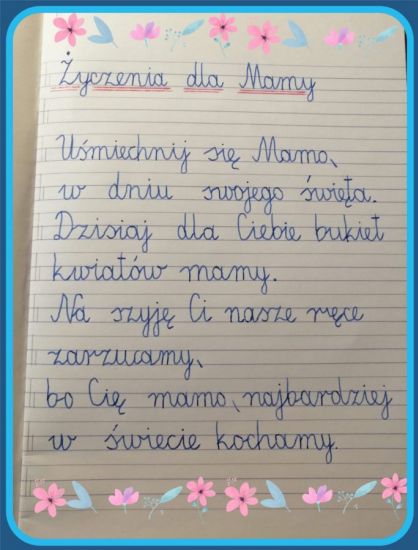 Życzenia dla Mamy
Uśmiechnij się Mamo,
w dniu swojego święta.
Dzisiaj dla Ciebie bukiet
kwiatów mamy.
Na szyję Ci nasze ręce
zarzucamy,
bo Cię mamo, najbardziej
w świecie kochamy.